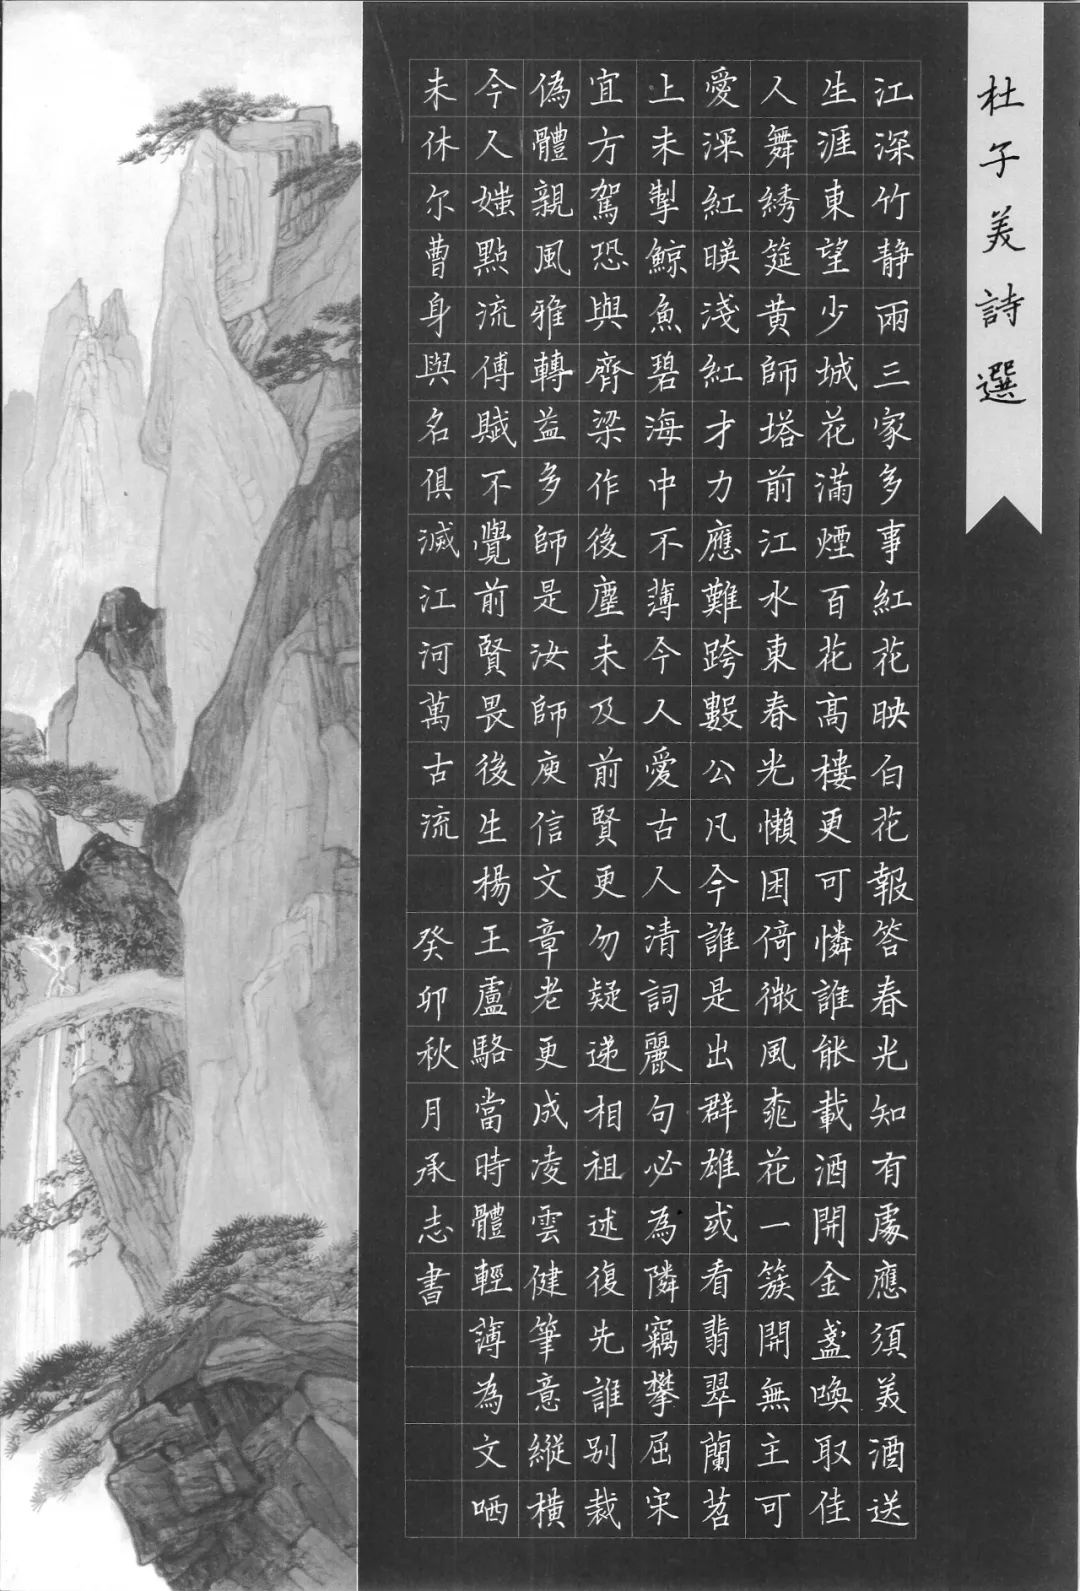 杜子美詩選
江深竹静兩三家多事紅花映白花報答春光知有處應須美酒送
生涯東望少城花滿煙百花高樓更可憐誰能載酒開金盞喚取佳
人舞綉筵黄師塔前江水東春光懶困倚微風桃花一簇開無主可
愛深紅映淺紅才力應難跨數公凡今誰是出群雄或看翡翠蘭苕
上未掣鯨魚碧海中不薄今人愛古人清詞麗句必為隣竊攀屈宋
宜方駕恐與齊梁作後塵未及前賢更勿疑递相祖述復先誰别裁
偽體親風雅轉益多師是汝師庾信文章老更成凌雲健筆意縱橫
今人嗤點流傳賦不覺前賢畏後生楊王盧駱當時體輕薄為文哂
未休尔曹身與名俱滅江河萬古流 癸卯秋月承志書